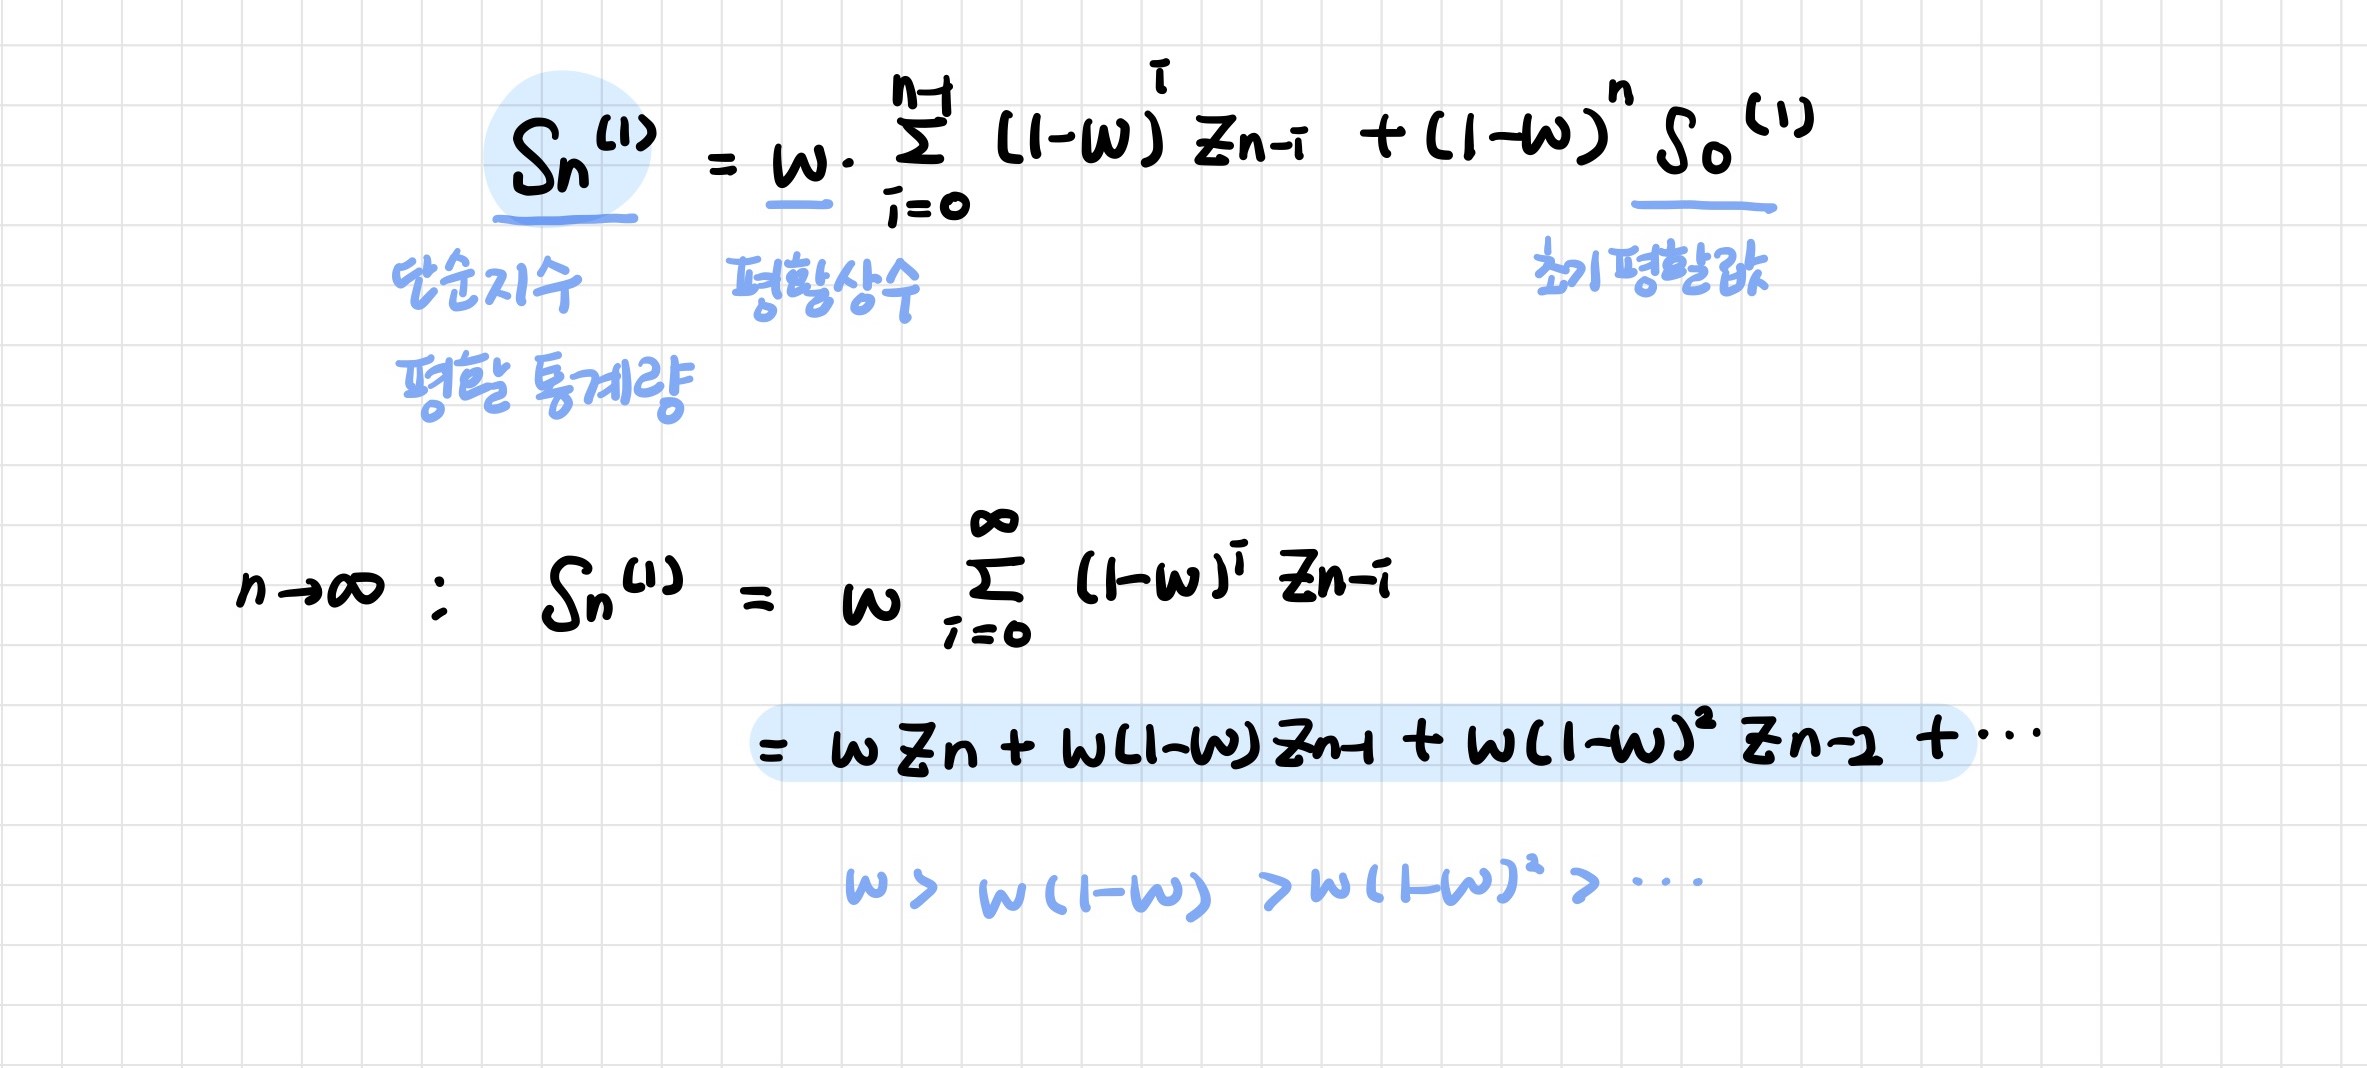 Sn^(1) = w · Σ_{i=0}^{n-1} (1-w)^i Zn-i + (1-w)^n S0^(1)
단순지수 평활상수 초기평활값
평활 통계량
n→∞ : Sn^(1) = w Σ_{i=0}^{∞} (1-w)^i Zn-i
= w Zn + w(1-w) Zn-1 + w(1-w)^2 Zn-2 + ···
w > w(1-w) > w(1-w)^2 > ···